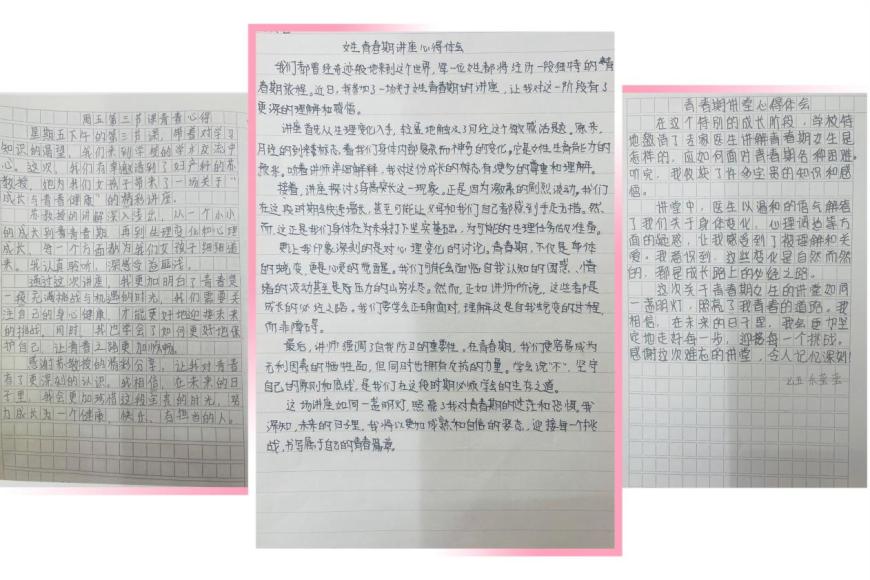 周五第三节课青春心得
星期五下午的第三节课，带着对学习
知识的渴望，我们来到学校的学术交流中
心。这次，我们有幸邀请到了妇产科的苏
教授，她为我们女孩子带来了一场关于“
成长与青春健康”的精彩讲座。
苏教授的讲解深入浅出，从一个小小
的成长到青春青春，再到生理变化和心理
成长，每一个方面都为我们女孩子细细道
来。我认真聆听，深感受益匪浅。
通过这次讲座，我更加明白了青春是
一段充满挑战与机遇的时光，我们需要关
注自己的身心健康，才能更好地迎接未来
的挑战。同时，我也学会了如何更好地保
护自己，让青春之路更加顺畅。
感谢苏教授的精彩分享，让我对青春
有了更深刻的认识。我相信，在未来的日
子里，我会更加珍惜这段宝贵的时光，努
力成长为一个健康、快乐、有担当的人。
女性青春期讲座心得体会
我们都曾经奇迹般地来到这个世界，每一位女性都将经历一段独特的青
春期旅程。近日，我参加了一场关于女性青春期的讲座，让我对这一阶段有了
更深的理解和感悟。
讲座首先从生理变化入手，轻盈地触及了月经这个敏感话题。原来，
月经的到来标志着我们身体内部复杂而神奇的变化。它是女性生育能力的
象征。听着讲师详细解释，我对这份成长的标志有了更多的尊重和理解。
接着，讲座探讨了身高突长这一现象。正是因为激素的剧烈波动，我们
在这段时期会快速增长，甚至可能让父母和我们自己都感到手足无措。然
而，这正是我们身体在为未来打下坚实基础，为可能的生理任务做好准备。
更让我印象深刻的是对心理变化的讨论。青春期，不仅是身体
的蜕变，更是心灵的觉醒。我们可能会面临自我认知的困惑、情
绪的波动甚至是对压力的山穷水尽。然而，正如讲师所说，这些都是
成长的必经之路。我们要学会正确面对，理解这是自我蜕变的过程，
而非障碍。
最后，讲师强调了自我防卫的重要性。在青春期，我们更容易成为
无利因素的牺牲品，但同时也拥有反抗的力量。学会说“不”，坚守
自己的原则和底线，是我们在这段时期必须学会的生存之道。
这场讲座如同一盏明灯，照亮了我对青春期的迷茫和恐惧。我
深知，未来的日子里，我将以更加成熟和自信的姿态，迎接每一个挑
战，书写属于自己的青春篇章。
青春期讲堂心得体会
在这个特别的成长阶段，学校特
地邀请了专家医生讲解青春期女生是
怎样的，应如何面对青春期各种困难。
听完，我收获了许多宝贵的知识和感
悟。
讲堂中，医生以温和的语气解答
了我们关于身体变化、心理调适等方
面的疑惑，让我感受到了被理解和关
爱。我意识到，这些变化是自然而然
的，都是成长路上的必经之路。
这次关于青春期女生的讲堂如同
一盏明灯，照亮了我青春的道路。我
相信，在未来的日子里，我会更加坚
定地走好每一步，迎接每一个挑战。
感谢这次难忘的讲堂，令人记忆深刻！